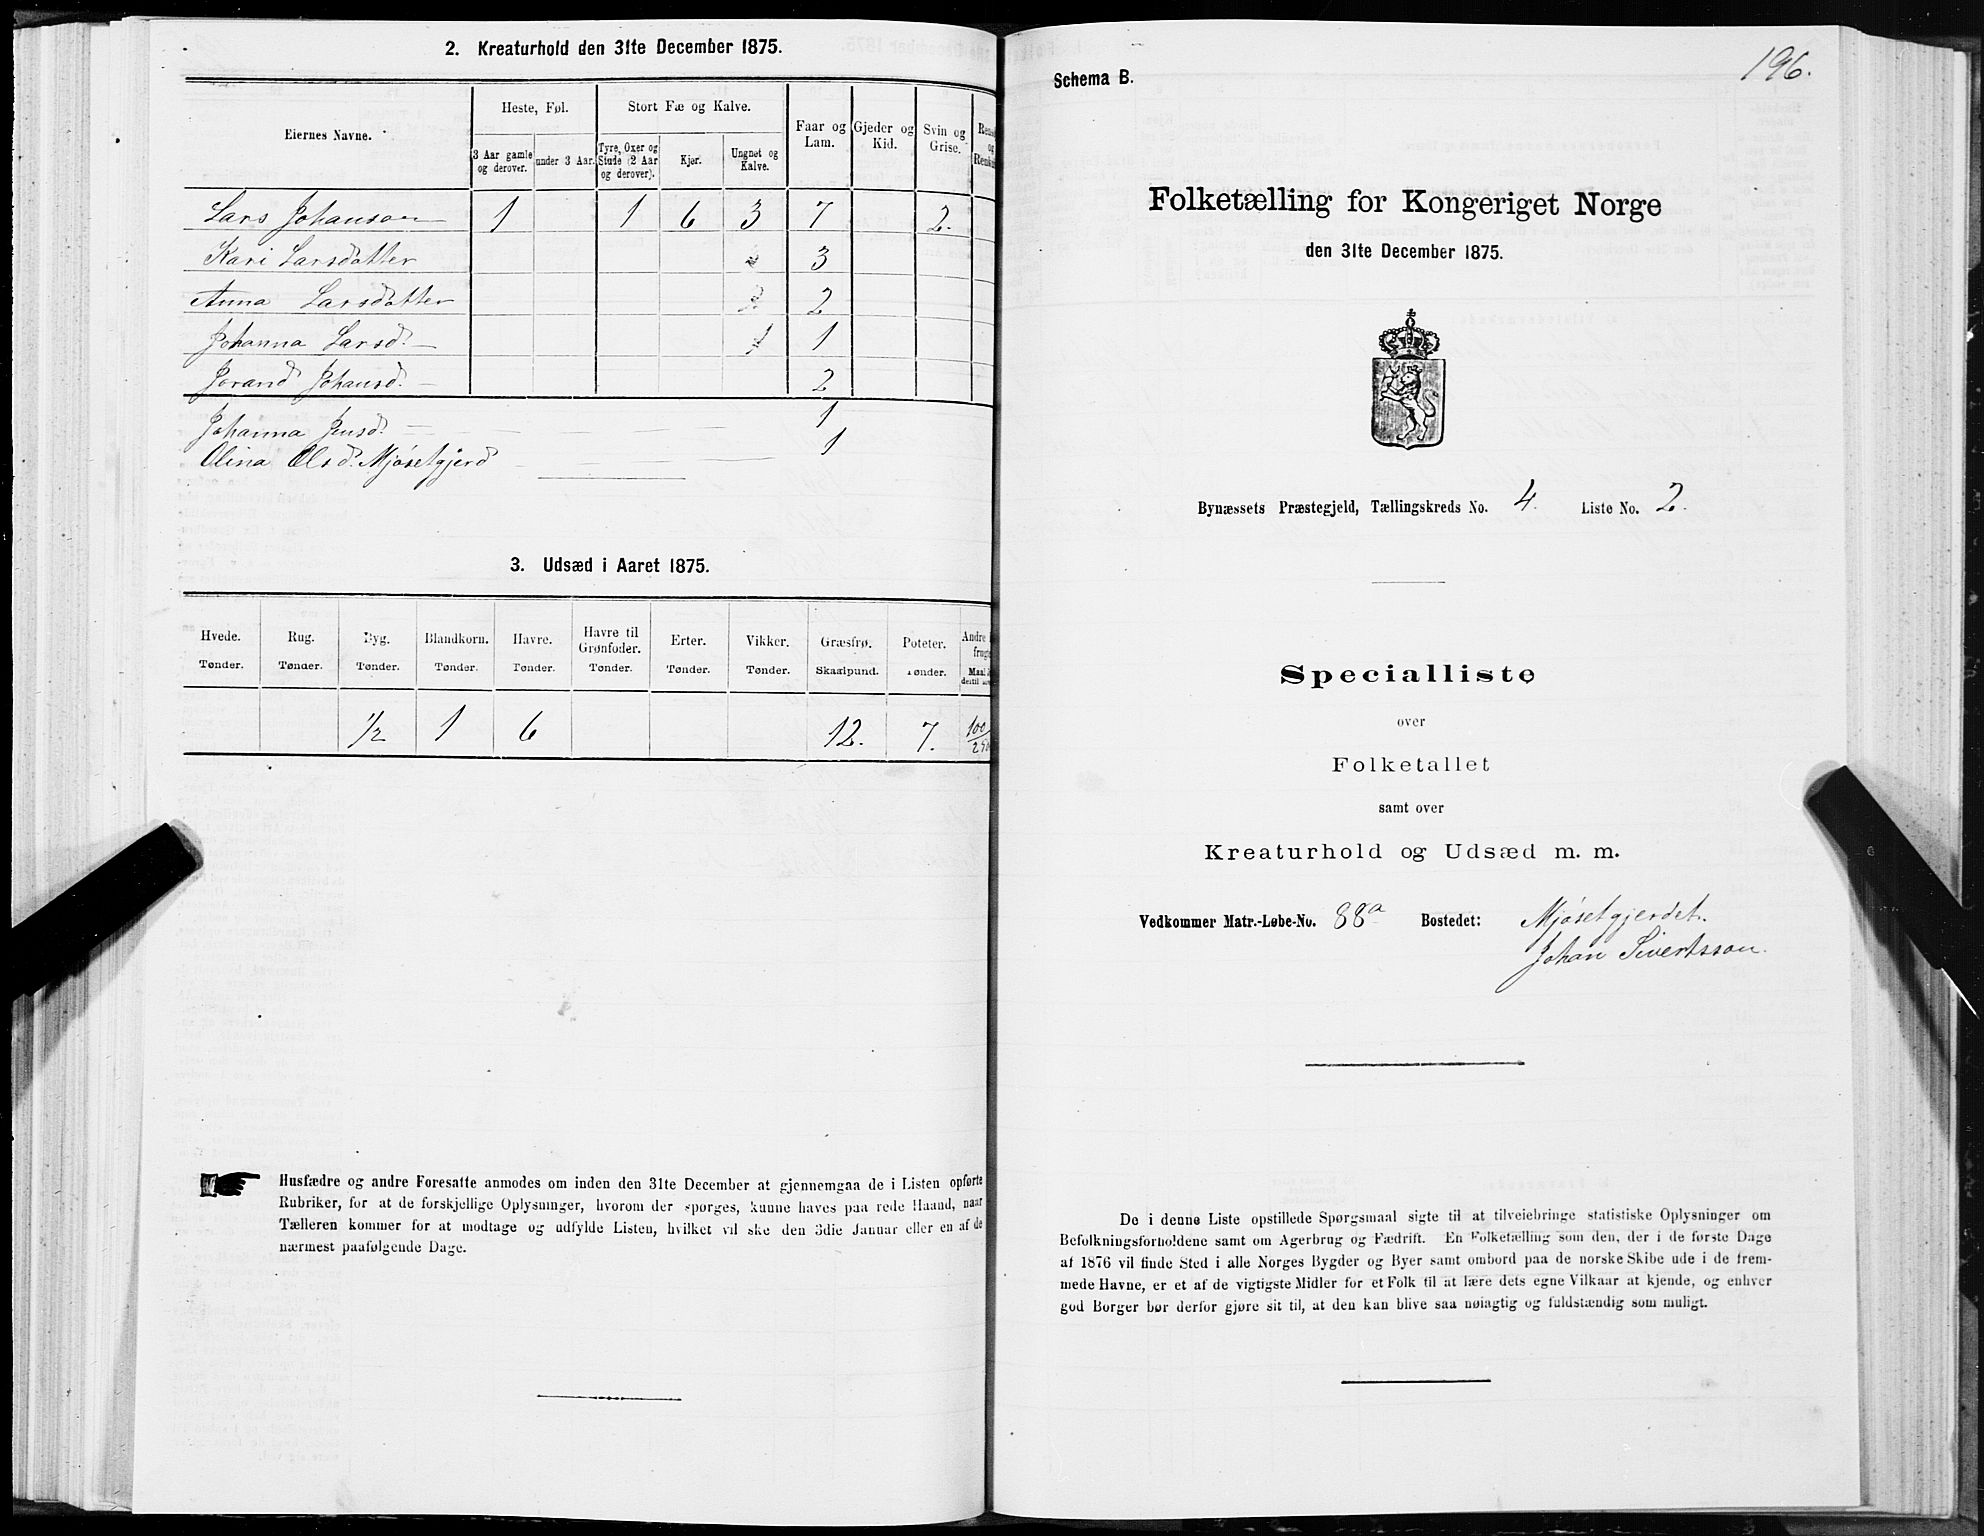 2. Kreaturhold den 31te December 1875.
Eiernes Navne.
Heste, Føl.
Stort Fæ og Kalve.
Faar og Lam.
Gjeder og Kid.
Svin og Grise.
3 Aar gamle og derover.
under 3 Aar.
Tyre, Oxer og Stude (2 Aar og derover).
Kjør.
Ungnet og Kalve.
Lars Johanson 1 1 6 3 7 2.
Kari Larsdatter 3
Anna Larsdatter 2
Johanna Larsd. 1
Jorand Johansd. 2
Johanna Jensd. 1
Olina Olsd. Mjøsetgjerd 1
3. Udsæd i Aaret 1875.
Hvede. Rug. Byg. Blandkorn. Havre. Havre til Grønfoder. Erter. Vikker. Græsfrø. Poteter. Andre
Tønder. Tønder. Tønder. Tønder. Tønder. Tønder. Tønder. Tønder. Skaalpund. Tønder.
1/2 1 6 12. 7.
Husfædre og andre Foresatte anmodes om inden den 31te December at gjennemgaa de i Listen opførte
Rubriker, for at de forskjellige Oplysninger, hvorom der spørges, kunne haves paa rede Haand, naar
Tælleren kommer for at modtage og udfylde Listen, hvilket vil ske den 3die Januar eller en af de
nærmest paafølgende Dage.
196.
Schema B.
Folketælling for Kongeriget Norge
den 31te December 1875.
Bynæssets Præstegjeld, Tællingskreds No. 4. Liste No. 2.
Specialliste
over
Folketallet
samt over
Kreaturhold og Udsæd m. m.
Vedkommer Matr.-Løbe-No. 88a Bostedet: Mjøsetgjerdet.
Johan Sivertsson.
De i denne Liste opstillede Spørgsmaal sigte til at tilveiebringe statistiske Oplysninger om
Befolkningsforholdene samt om Agerbrug og Fædrift. En Folketælling som den, der i de første Dage
af 1876 vil finde Sted i alle Norges Bygder og Byer samt ombord paa de norske Skibe ude i de frem-
mede Havne, er et af de vigtigste Midler for et Folk til at lære dets egne Vilkaar at kjende, og enhver
god Borger bør derfor gjøre sit til, at den kan blive saa nøiagtig og fuldstændig som muligt.